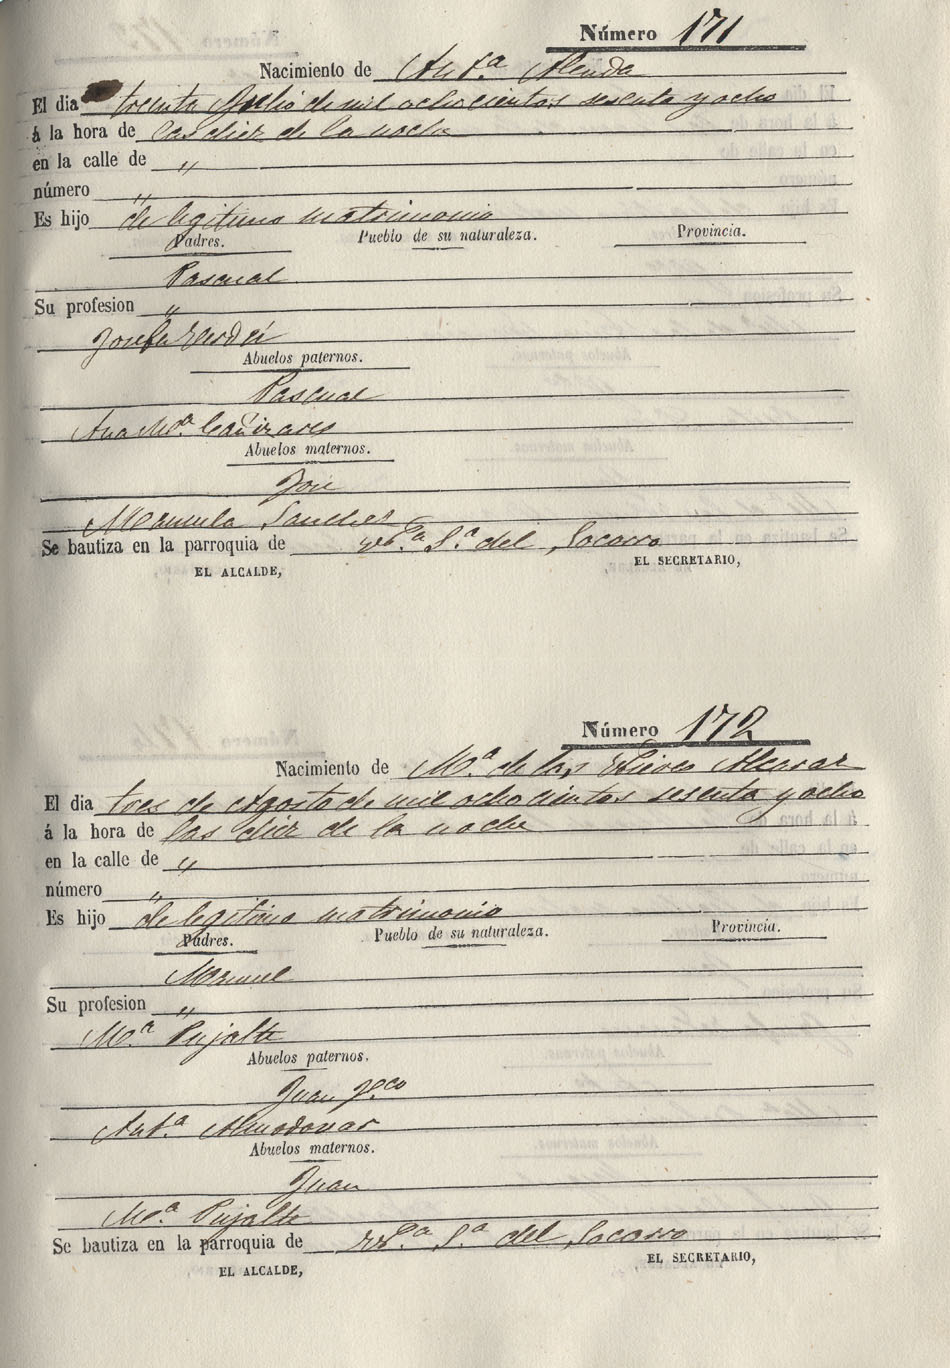 Número 171
Nacimiento de Ant.ª Alenda
El dia treinta Julio de mil ochocientos sesenta y ocho
á la hora de las diez de la noche
en la calle de "
número "
Es hijo de legitimo matrimonio
Padres. Pueblo de su naturaleza. Provincia.
Pascual
Su profesion "
Josefa Verdú
Abuelos paternos.
Pascual
Ana M.ª Cañizares
Abuelos maternos.
José
Manuela Sanchez
Se bautiza en la parroquia de Ntr.ª S.ª del Socorro
EL ALCALDE, EL SECRETARIO,
Número 172
Nacimiento de M.ª de las Nieves Alcaraz
El dia tres de Agosto de mil ochocientos sesenta y ocho
á la hora de las diez de la noche
en la calle de "
número "
Es hijo de legitimo matrimonio
Padres. Pueblo de su naturaleza. Provincia.
Manuel
Su profesion "
M.ª Pujalte
Abuelos paternos.
Juan Fº.co
Ant.ª Almodovar
Abuelos maternos.
Juan
M.ª Pujalte
Se bautiza en la parroquia de Ntr.ª S.ª del Socorro
EL ALCALDE, EL SECRETARIO,